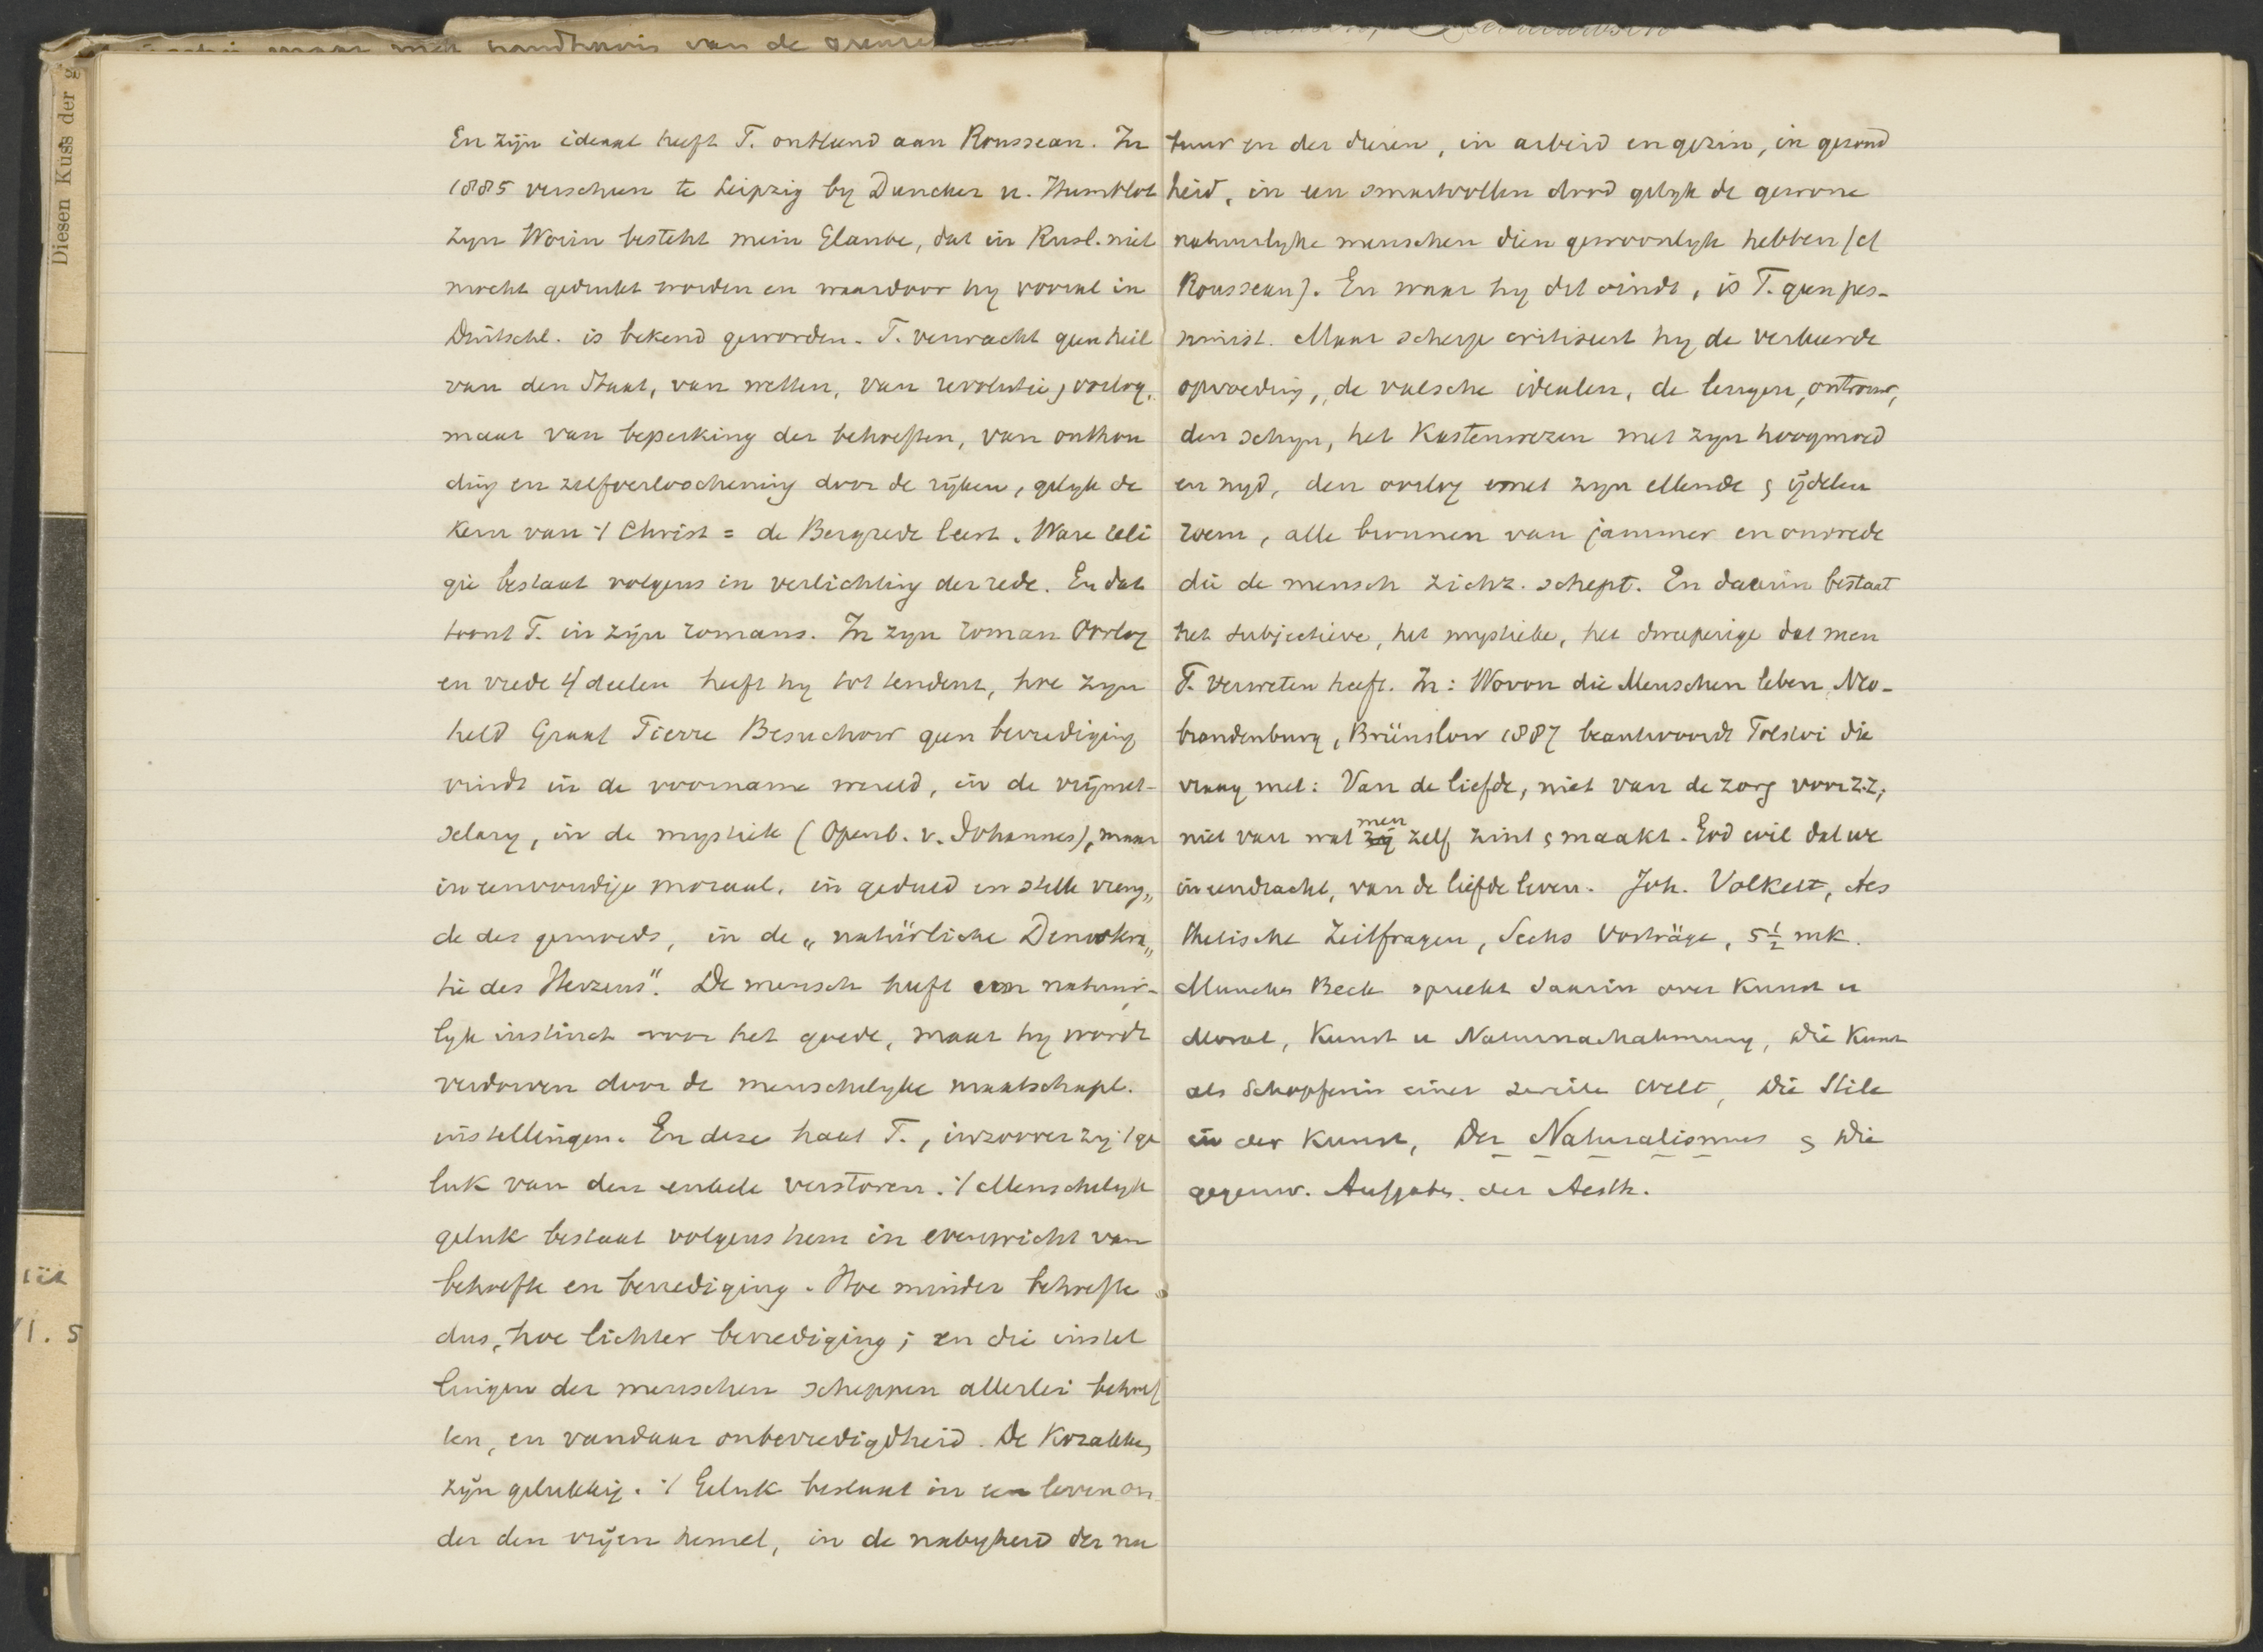 maar met handhavis van de grenzen
Diesen Kuss der
En zijn ideaal heeft T. ontleend aan Rousseau. In
1885 verscheen te Leipzig by Duncker u. Humblot
zyn Worin besteht mein Glaube, dat in Rusl. niet
mocht gedrukt worden en waardoor hy vooral in
Duitschl. is bekend geworden. T. verwacht geen heil
van den Staat, van wetten, van revolutie, oorlog,
maar van beperking der behoeften, van onthou
ding en zelfverloochening door de rijken, gelyk de
Kern van ’t Christ = de Bergrede leert. Ware reli
gie bestaat volgens in verlichting der rede. En dat
toont T. in zijn romans. In zyn roman Oorlog
en vrede 4/ deelen heeft hy tot tendent, hoe zyn
held Graaf Pierre Besuchow geen bevrediging
vindt in de voorname wereld, in de vrijmet-
selary, in de mystiek (Openb. v. Johannes), maar
in eenvoudige moraal, in geduld en stille vreug„
de des gemoeds, in de „natürliche Demokra„
tie des Herzens“. De mensch heeft een natuur-
lyk instinct voor het goede, maar hy wordt
verdorven door de menschelyke maatschapl.
instellingen. En deze haat T., inzoover zij ’t ge
luk van den enkele verstoren. ’t Menschelyk
geluk bestaat volgens hem in evenwicht van
behoefte en bevrediging. Hoe minder behoefte
dus, hoe lichter bevrediging; en die instel
lingen der menschen scheppen allerlei behoef
ten, en vandaar onbevredigdheid. De Kozakken
zijn gelukkig. ’t Geluk bestaat in een leven on
der den vrijen hemel, in de nabyheid der na
tuur en der dieren, in arbeid en gezin, in gezond
heid, in een smartvollen dood gelyk de gewone
natuurlyke menschen dien gewoonlyk hebben (cf
Rousseau). En waar hy dit vindt, is T. geen pes-
simist. Maar scherp critiseert hy de verkeerde
opvoeding, de valsche idealen, de leugen, ontrouw,
den schyn, het Kastenwezen met zyn hoogmoed
en nyd, den oorlog met zyn ellende & ijdelen
roem, alle bronnen van jammer en onvrede
die de mensch zichz. schept. En daarin bestaat
het subjectieve, het mystieke, het dweeperige dat men
T. verweten heeft. In: Wovon die Menschen leben, Neo-
brandenburg, Brünslow 1887 beantwoordt Tolstoi die
vraag met: Van de liefde, niet van de zorg voor z.z,
niet van wat men zelf zint & maakt. God wil dat we
in eendracht, van de liefde leven. Joh. Volkelt, Aes
thetische Zeitfragen, Sechs Vorträge, 5½ mk.
München Beck spreekt daarin over Kunst u
Moral, Kunst u Naturnachahmung, Die Kunst
als Schopferin einer zweite Welt, Die Stile
in der Kunst, Der Naturalismus & Die
gegenw. Aufgabe. der Aesth.